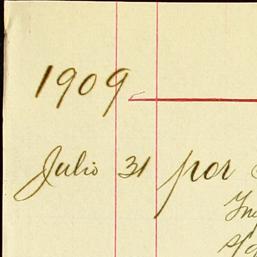 1909
Julio 31 por